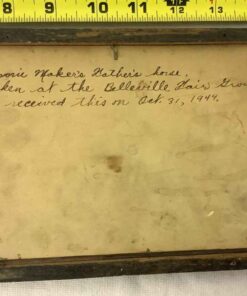 8 9 10 11 12
Maker's Father's horse.
at the Belleville Fair
received this on Oct. 31, 1944.